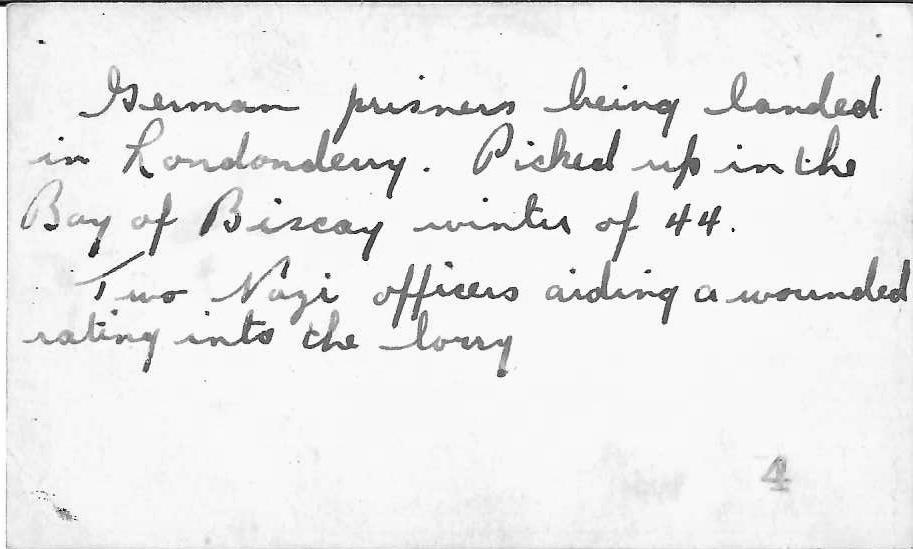 German prisners being landed
in Londonderry. Picked up in the
Bay of Biscay winter of 44.
Two Nazi officers aiding a wounded
rating into the lorry
4